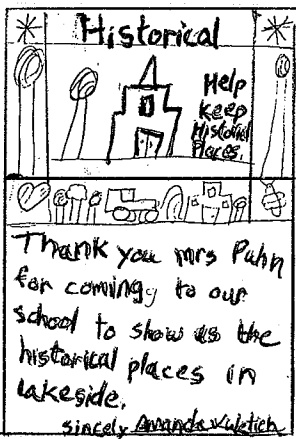 Historical
Help
Keep
Historical
Places.
Thank you mrs Puhn
for coming to our
school to show us the
historical places in
lakeside.
sincely Amanda